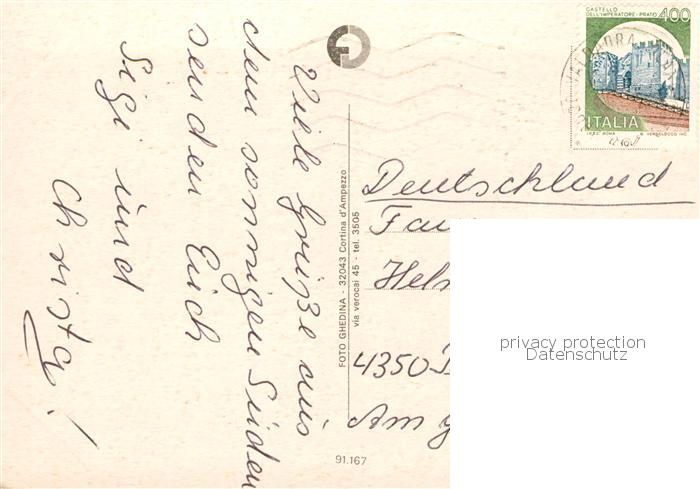 Viele Grüße aus
dem sonnigen Süden
senden Euch
Sigi und
Christa!
FOTO GHEDINA - 32043 Cortina d'Ampezzo
via verocai 45 - tel. 3505
CASTELLO
DELL'IMPERATORE - PRATO
400
ITALIA
I.P.Z.S. ROMA
Deutschland
4350
Am
91.167
privacy protection
Datenschutz